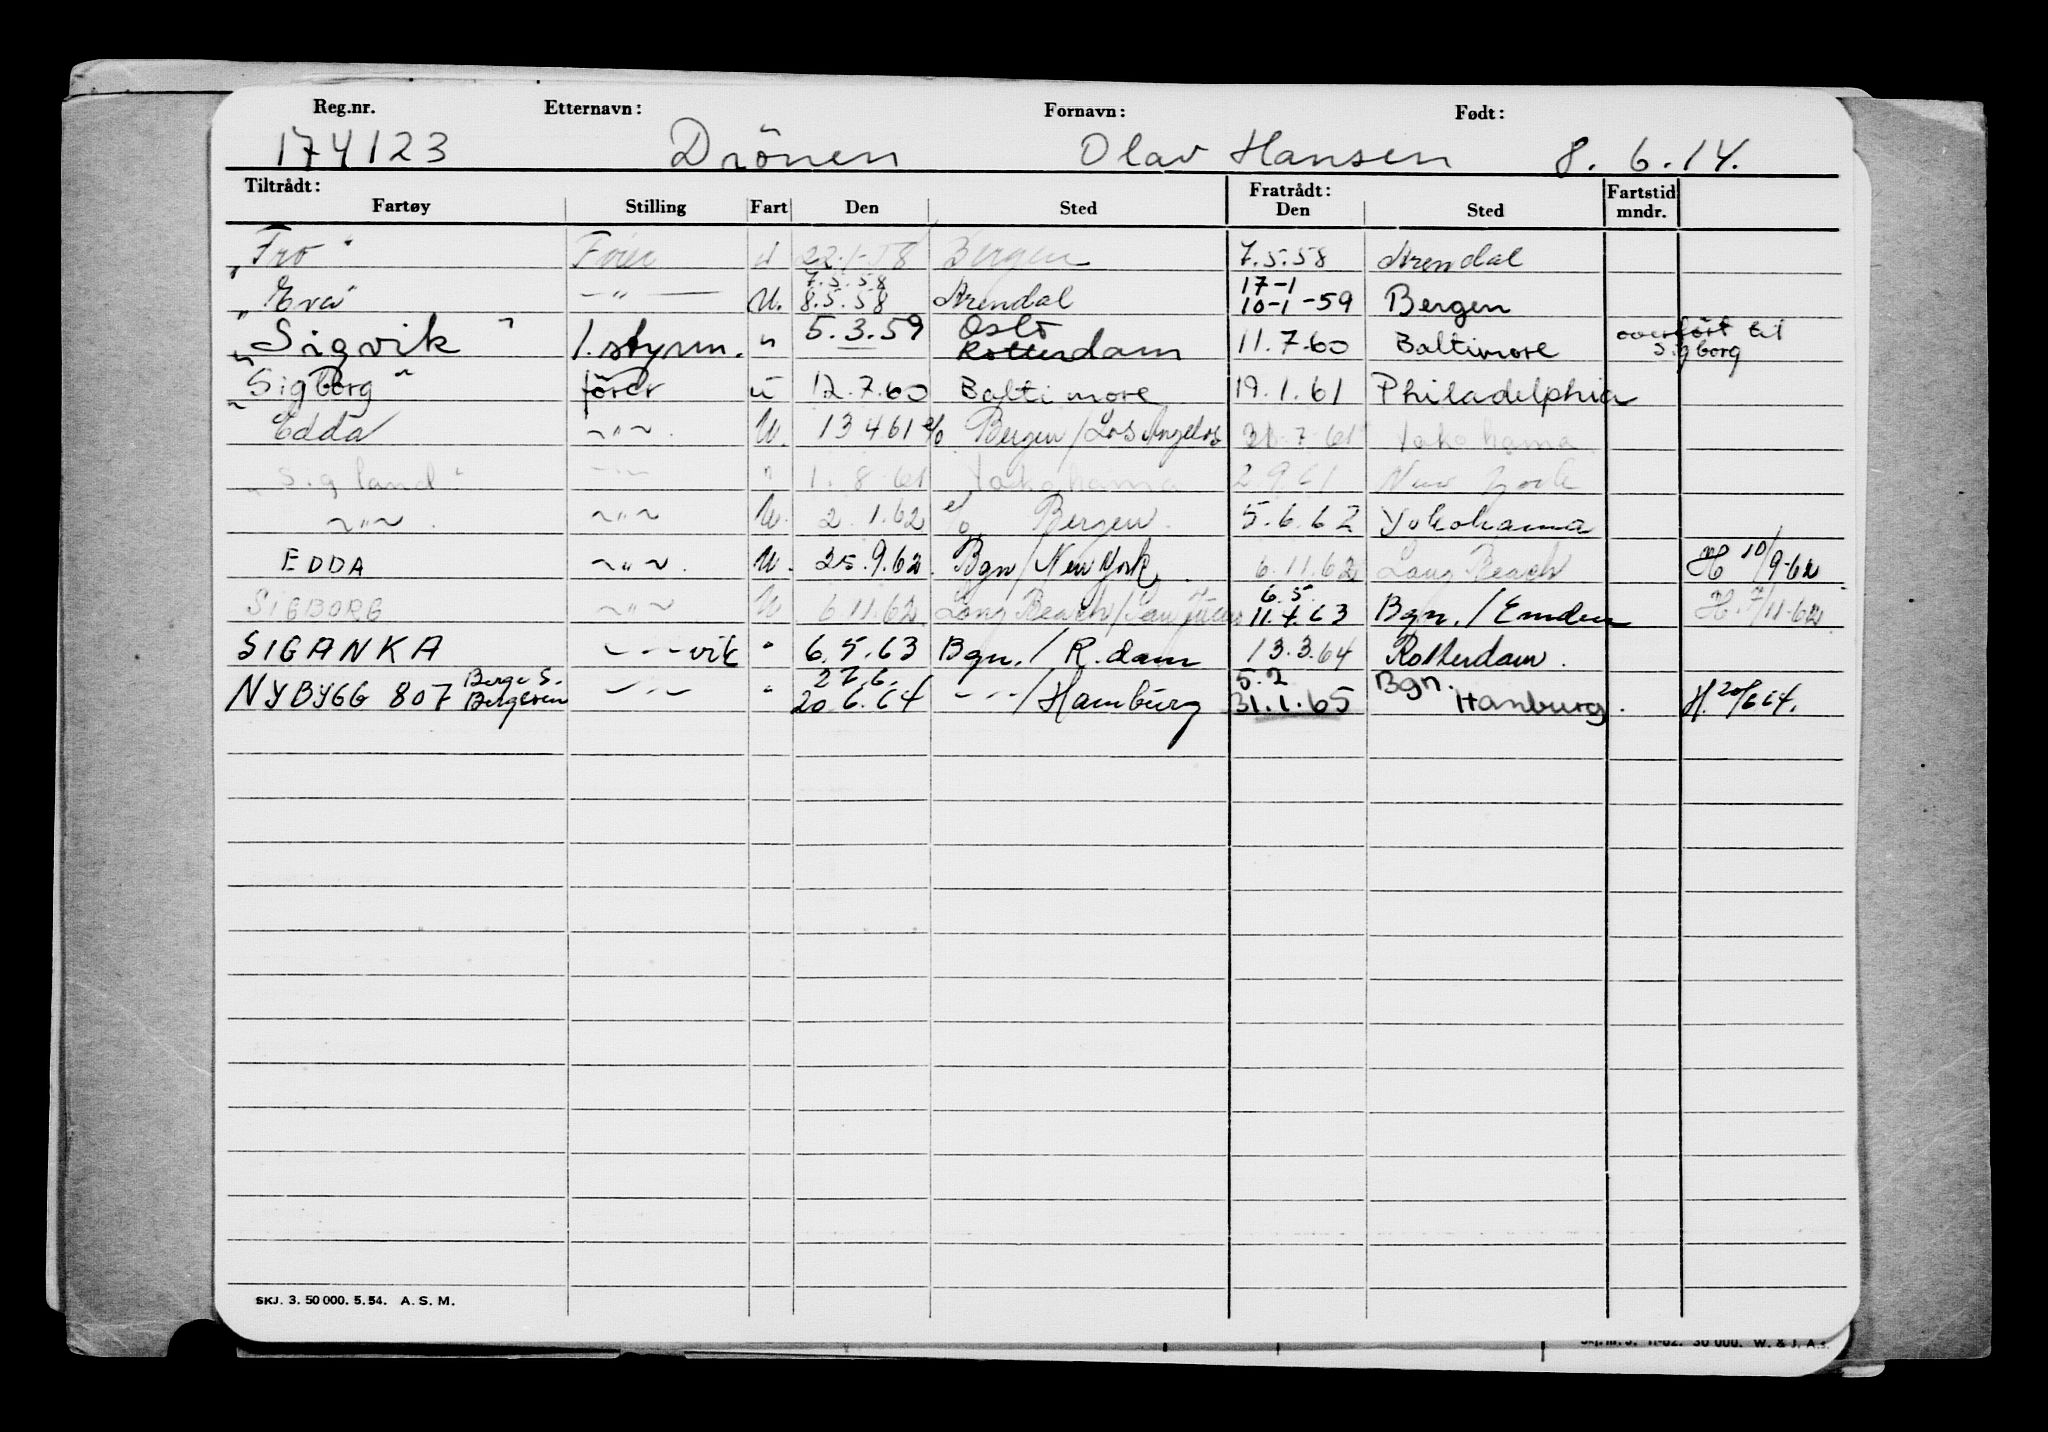 Reg.nr. Etternavn: Fornavn: Født:
174123 Drönen Olav Hansen 8. 6. 14.
Tiltrådt: Fratrådt: Fartstid
Fartøy Stilling Fart Den Sted Den Sted mndr.
"Fro" Fører u 22.1.58 Bergen 7.5.58 Arendal
7.5.58 17-1
"Eva" —"— U. 8.5.58 Arendal 10-1-59 Bergen
Oslo overført til
"Sigvik" 1. styrm. " 5.3.59 Rotterdam 11.7.60 Baltimore Sigborg
"Sigborg" förer u 12.7.60 Baltimore 19.1.61 Philadelphia
Edda ~"~. U. 13 4 61 e/o Bergen/Los Angelos 31.7.61 Yokohama
"Sigland" ~"~ " 1. 8.61 Yokohama 2.9.61 New York
~"~. ~"~ U. 2.1.62 e/o Bergen. 5.6.62 Yokohama
EDDA ~"~. U. 25.9.62. Bgn/New York. 6.11.62 Long Beach H 10/9-62
6.5.
SIGBORG ~"~ U 6.11.62 Long Beach/ 11.4.63 Bgn./Emden H. 7/11-62.
SIGANKA —"—vik " 6.5.63 Bgn./R.dam 13.3.64 Rotterdam.
Berge S. 27.6. 5.2 Bgn.
NYBYGG 807 Bergesen —"— " 20.6.64 —"—/Hamburg 31.1.65 Hamburg. H. 20/6 64.
SKJ. 3. 50 000. 5. 54. A. S. M.
Skj. nr. 3. 11-62. 30 000. W. & J. A.s.